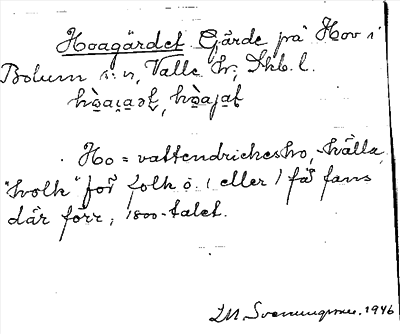 Hoagärdet. Gärde på Hov i
Bolum s:n, Valle hr; Skb. l.
Ho = vattendrickesho, källa,
"holk" för folk o. / eller / få fans
där förr, 1800-talet.
D.N. Svenningsson. 1946